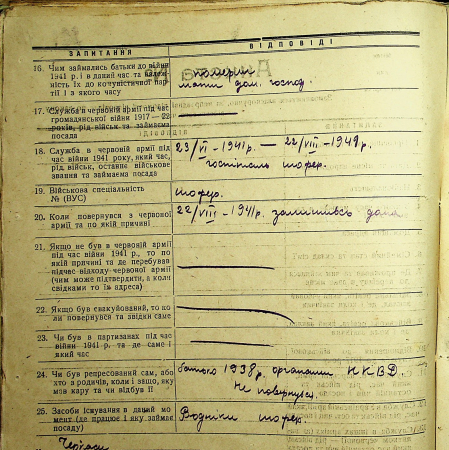 ЗАПИТАННЯ
ВІДПОВІДІ
16. Чим займались батьки до війни
1941 р. і в даний час та належ-
ність їх до комуністичної пар-
тії і з якого часу
померли
мати дом. господ.
17. Служба в червоній армії під час
громадянської війни 1917—22
років, рід військ та займаєма
посада
18. Служба в червоній армії під
час війни 1941 року, який час,
рід військ, останнє військове
звання та займаєма посада
23/VI-1941р. — 22/VIII-1941р.
госпіталь шофер.
19. Військова спеціальність
№ (ВУС)
шофер.
20. Коли повернувся з червоної
армії та по якій причині
22/VIII-1941р. залишився дома
21. Якщо не був в червоній армії
під час війни 1941 р., то по
якій причині та де перебував
підчес відходу червоної армії
(чим може підтвердити, а коли
свідками то їх адреса)
22. Якщо був евакуйований, то ко-
ли повернувся та звідки саме
23. Чи був в партизанах під час
війни 1941 р. та де саме і
який час
24. Чи був репресований сам, або
хто з родичів, коли і защо, яку
мав кару та чи відбув її
батько 1938р. органами НКВД
Не повернувся.
25. Засоби існування в даний мо-
мент (де працює і яку займає
посаду)
Водники шофер.
Черкаси